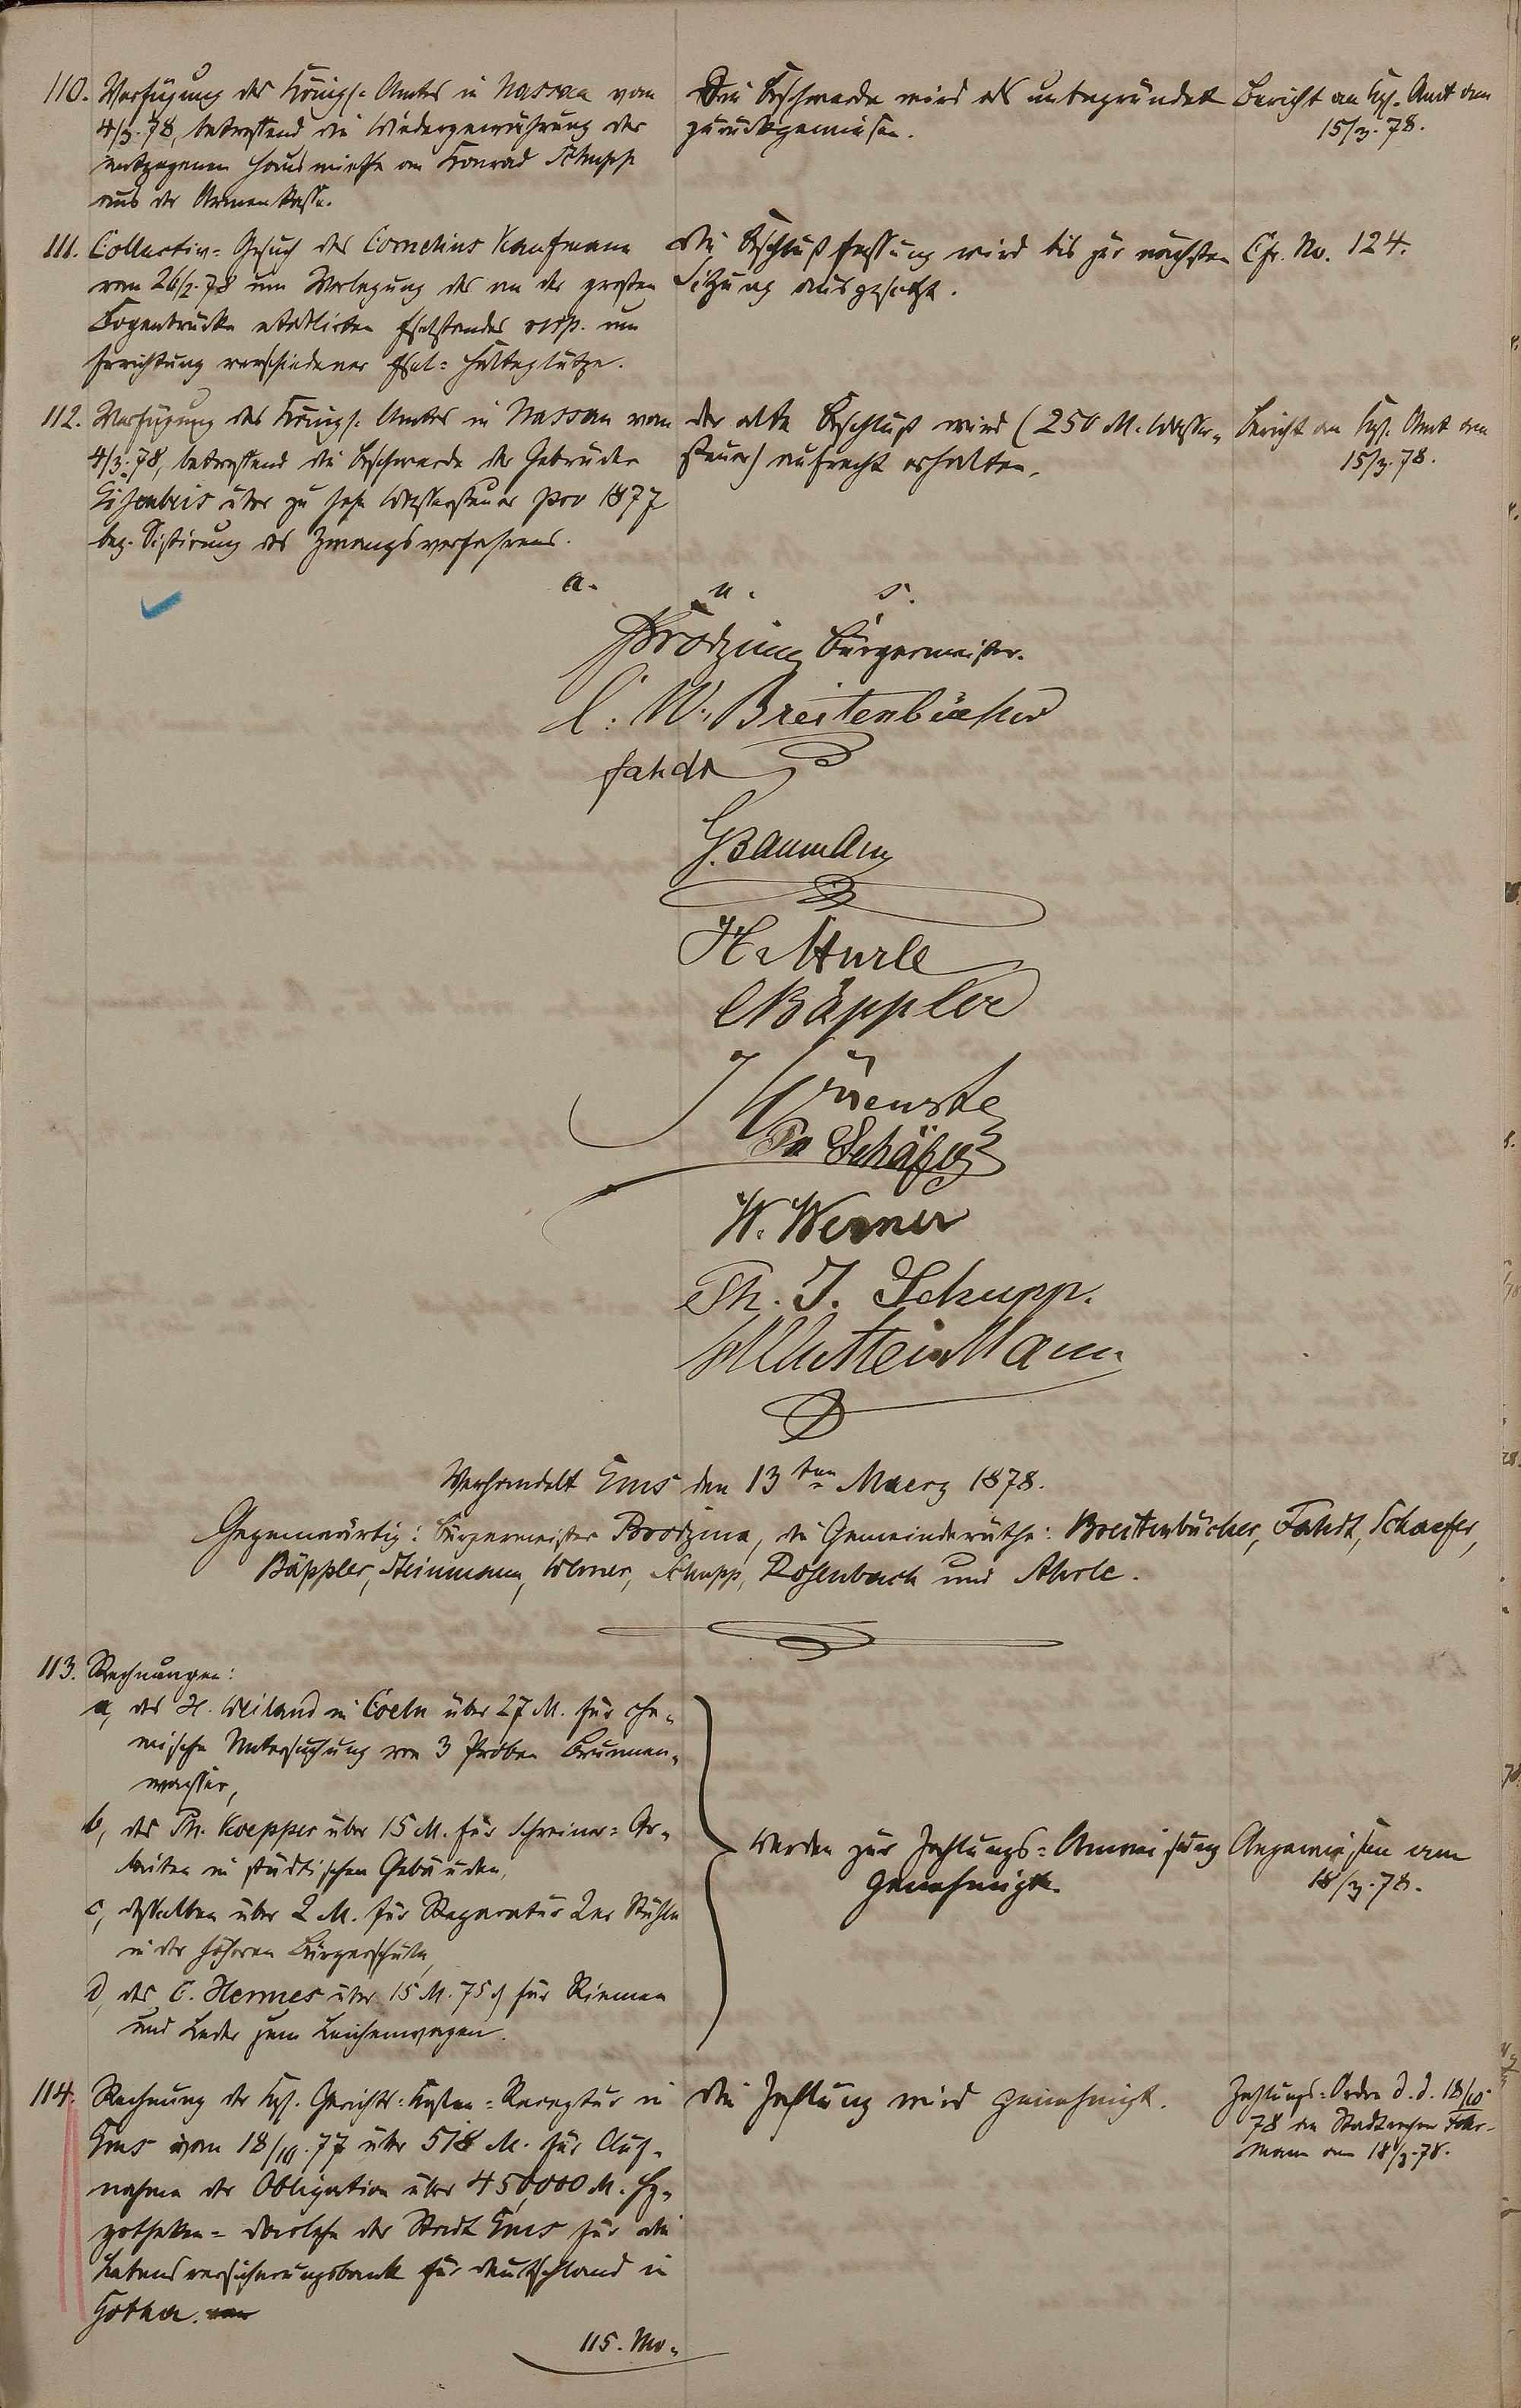 110. Verfügung des Königl. Amtes in Nassau vom
4/3. 78, betreffend die Wiedergewährung der
entzogenen Hausmiethe an Konrad Schupp
aus der Armenkasse.
Die Beschwerde wird als unbegründet
zurückgewiesen.
Bericht an Kgl. Amt am
15/3. 78.
111. Collectiv-Gesuch des Cornelius Kaufmann
vom 26/2. 78 um Verlegung des an der großen
Bogenbrücke etablirten Eselstandes resp. um
Errichtung verschiedener Esel-Halteplätze.
Die Beschlußfassung wird bis zur nächsten
Sitzung ausgesetzt.
Cfr. No. 124.
112. Verfügung des Königl. Amtes in Nassau vom
4/3. 78, betreffend die Beschwerde der Gebrüder
über zu hohe Wassersteuer pro 1877
bez. Sistirung des Zwangsverfahrens.
Der alte Beschluß wird (250 M. Wasser-
steuer) aufrecht erhalten.
Bericht an Kgl. Amt am
15/3. 78.
a. u. s.
Brodzina Bürgermeister.
C. W. Breitenbücher
Fahdt
G. Baumann
H.
Bäppler
Schäfer
W. Werner
Ph. J. Schupp.
Verhandelt Ems den 13ten Maerz 1878.
Gegenwärtig: Bürgermeister Brodzina, die Gemeinderäthe: Breitenbücher, Fahdt, Schaefer,
Bäppler, Steinmann, Werner, Schupp, Rosenbach und
113. Rechnungen:
a, des H. Weiland in Coeln über 27 M. für che-
mische Untersuchung von 3 Proben Brunnen-
wasser,
b, des Ph. Koepper über 15 M. für Schreiner-Ar-
beiten in städtischen Gebäuden,
c, desselben über 2 M. für Reparatur 2er Stühle
in der höheren Bürgerschule,
d, des C. Hermes über 15 M. 75 ₰ für Riemen
und Leder zum Leichenwagen.
Werden zur Zahlungs-Anweisung
genehmigt.
Angewiesen am
18/3. 78.
114. Rechnung der Kgl. Gerichts-Kosten-Receptur in
Ems vom 18/10. 77 über 518 M. für Auf-
nahme der Obligation über 450,000 M. Hy-
potheken-Darlehn der Stadt Ems für die
Lebensversicherungsbank für Deutschland in
Gotha.
Die Zahlung wird genehmigt.
Zahlungs-Ordre d. d. 18/10
78 an Stadtrechner
mann am 18/3. 78.
115. Mo-